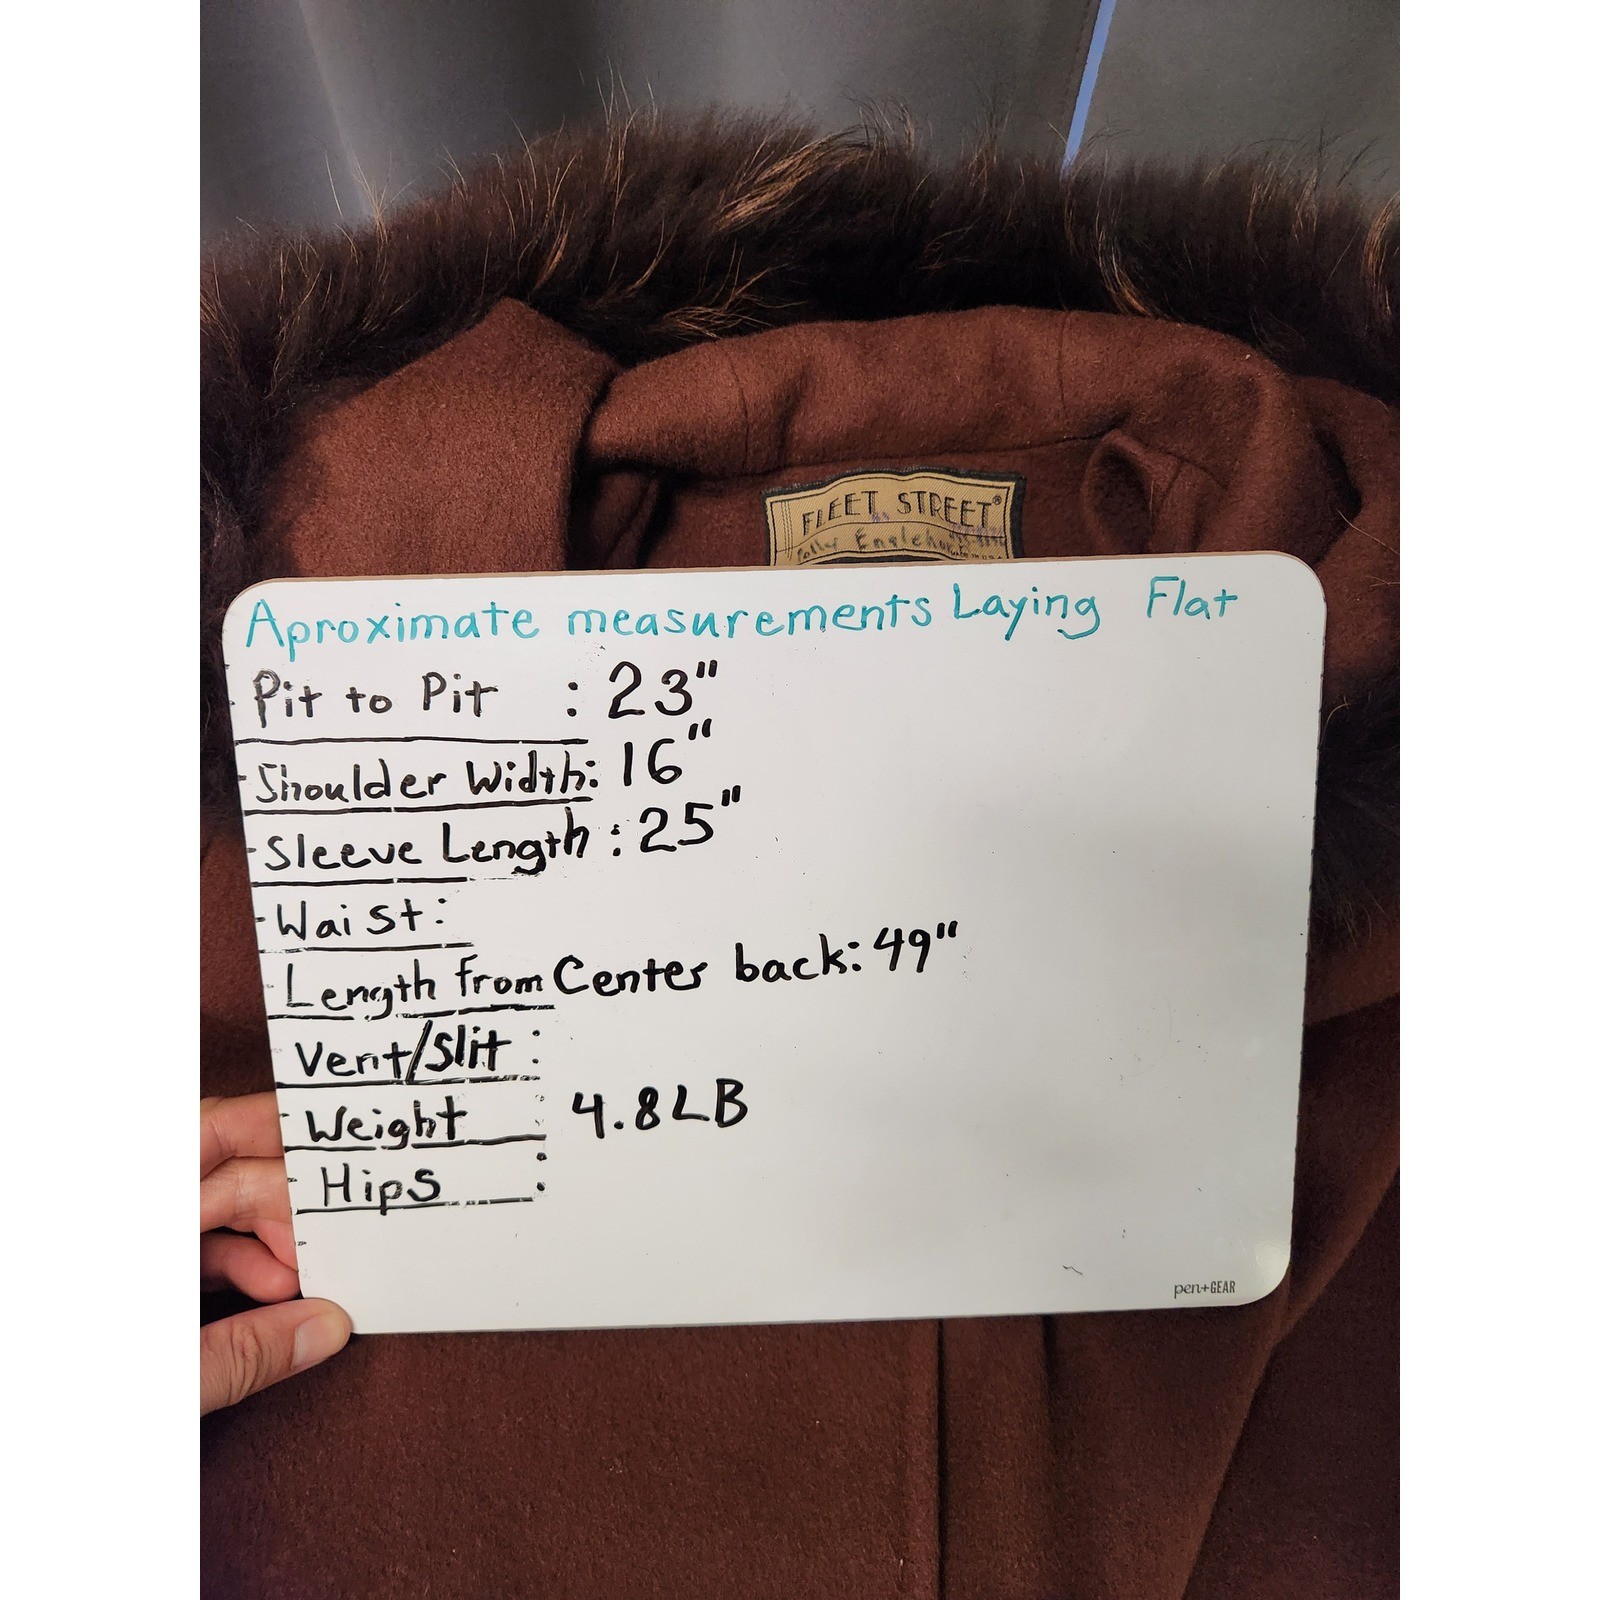 FLEET STREET®
Polly Engleho
Aproximate measurements Laying Flat
Pit to Pit : 23"
Shoulder Width: 16"
Sleeve Length : 25"
Waist:
Length from Center back: 49"
Vent/Slit :
Weight : 4.8LB
Hips :
pen+GEAR